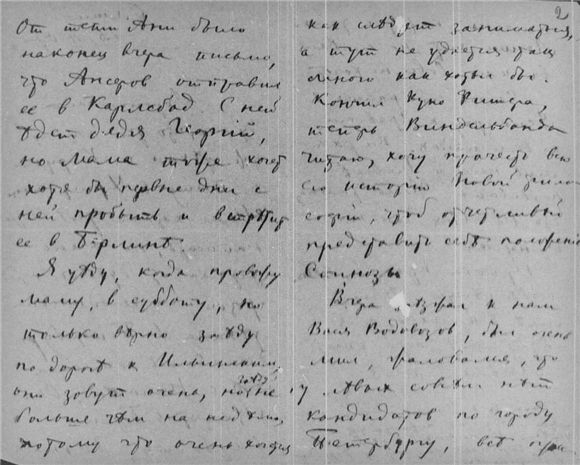 От тети Ани было
наконец вчера письмо,
что Ансеров отправил
ее в Карлсбад. С ней
ѣдет дядя Георгій,
но мама тоже хочет
хотя бы первые дни с
ней пробыть и встрѣтит
ее в Берлинѣ.
Я уѣду, когда провожу
маму, в субботу, но
только вѣрно заѣду
по дорогѣ к Ильинским,
они зовут очень, но не заѣду
больше чѣм на недѣлю,
потому что очень хочется
2
как слѣдует заниматься,
а тут не удается так
много как хотѣл бы.
Кончил Куно Фишера,
теперь Виндельбанда
читаю, хочу прочесть всю
его исторію Новой фило-
софіи, чтоб отчетливѣй
представить себѣ положеніе
Спинозы.
Вчера заѣзжал к нам
Вася Водовозов, был очень
мил, жаловался, что
у лѣвых совсѣм нѣт
кандидатов по городу
Петербургу, всѣ